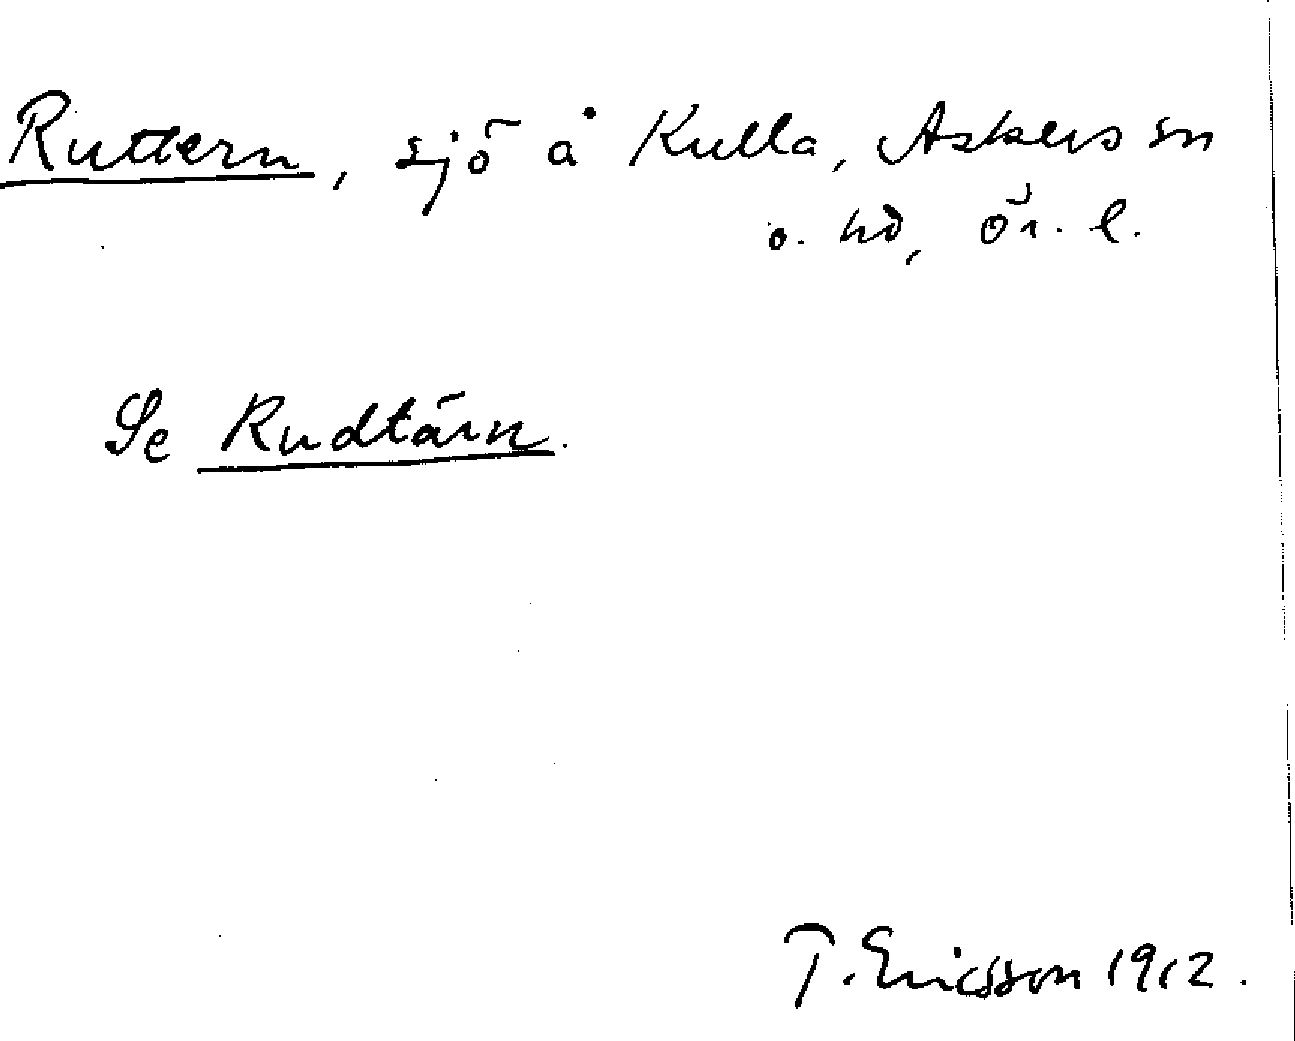 Ruttern, sjö å Kulla, Askers sn
o. hd, Ör. l.
Se Rudtärn.
T. Ericsson 1912.